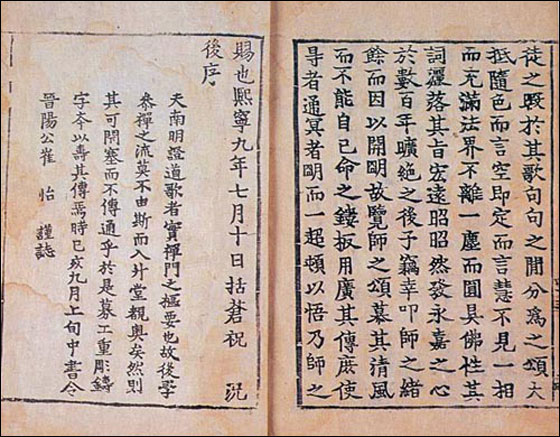 徒之歿於其歌句句之閒分爲之頌大
抵隨色而言空即定而言慧不見一相
而充滿法界不離一塵而圓具佛性其
詞灑落其旨宏遠昭昭然發永嘉之心
於數百年曠絶之後子竊幸叩師之緒
餘而因以開明故覽師之頌慕其清風
而不能自已命之鏤板用廣其傳庶使
导者通冥者明而一起頓以悟乃師之
賜也熙寧九年七月十日括蒼祝 況
後序
夫南明證道歌者實禪門之樞要也故後學
叅禪之流莫不由斯而入升堂覩奧矣然則
其可閇塞而不傳通乎於是募工重彫鑄
字夲以壽其傳焉時已亥九月上旬中書令
晉陽公崔 怡 謹誌